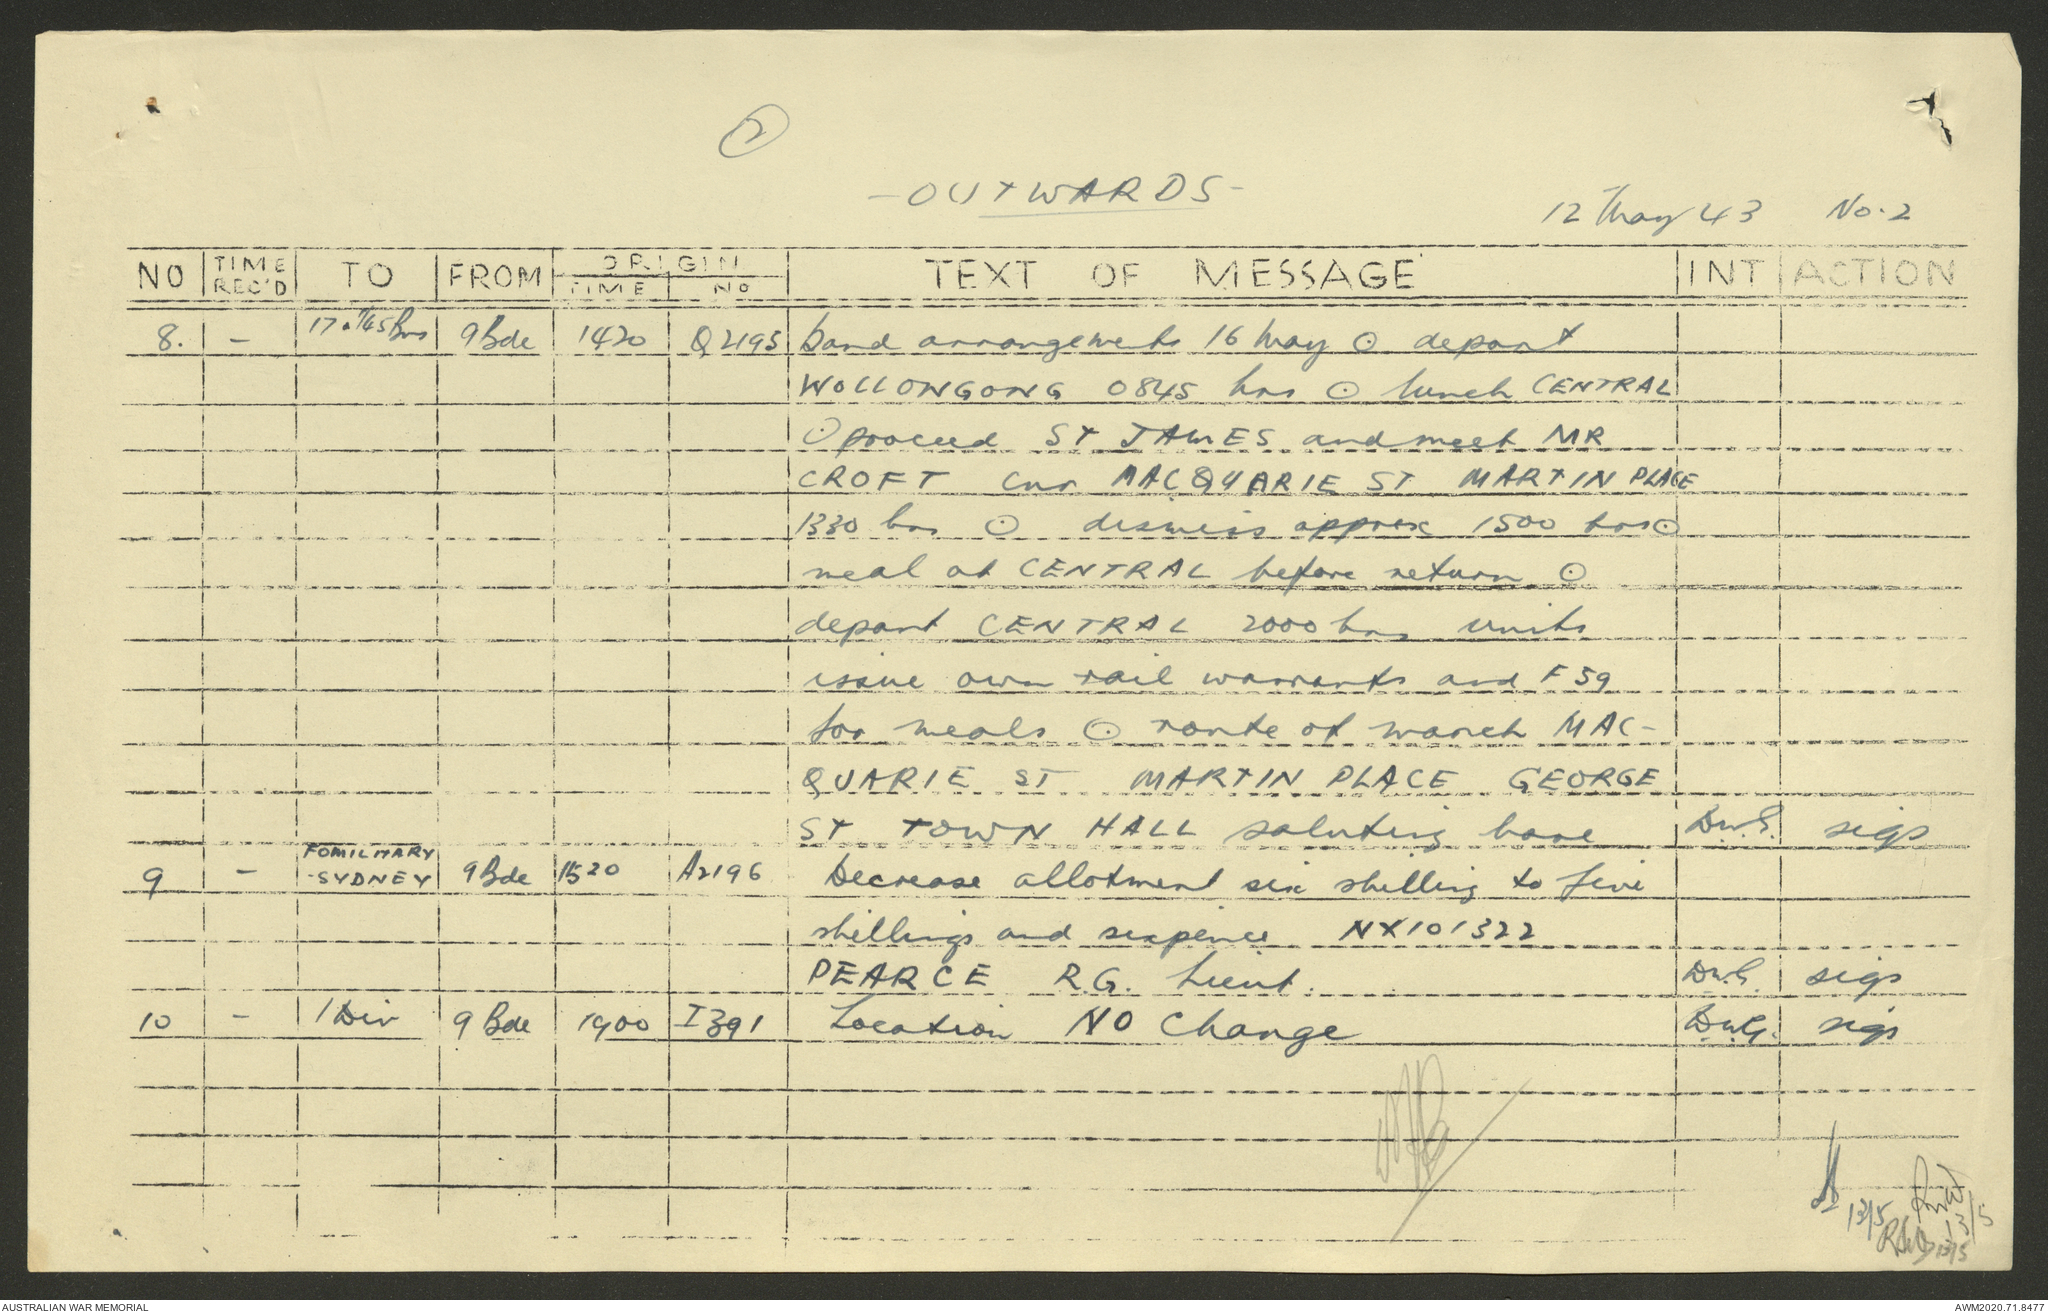 2
- OUTWARDS -
12 May 43 No. 2
NO TIME REC'D TO FROM ORIGIN TIME NO TEXT OF MESSAGE INT ACTION
8. - 17 & 45 Bns 9 Bde 1420 Q2195 band arrangements 16 May ⊙ depart
WOLLONGONG 0845 hrs ⊙ lunch CENTRAL
⊙ proceed ST JAMES and meet MR
CROFT cnr MACQUARIE ST MARTIN PLACE
1330 hrs ⊙ dismiss approx 1500 hrs ⊙
meal at CENTRAL before return ⊙
depart CENTRAL 2000 hrs units
issue own rail warrants and F 59
for meals ⊙ route of march MAC-
QUARIE ST MARTIN PLACE GEORGE
ST TOWN HALL saluting base D.W.G. sigs
9 - FOMILITARY SYDNEY 9 Bde 1520 A2196 Decrease allotment six shilling to five
shillings and sixpence NX101322
PEARCE R.G. Lieut. D.W.G. sigs
10 - 1 Div 9 Bde 1900 I391 Location NO change D.W.G. sigs
13/5
13/5
13/5
AUSTRALIAN WAR MEMORIAL AWM2020.71.8477